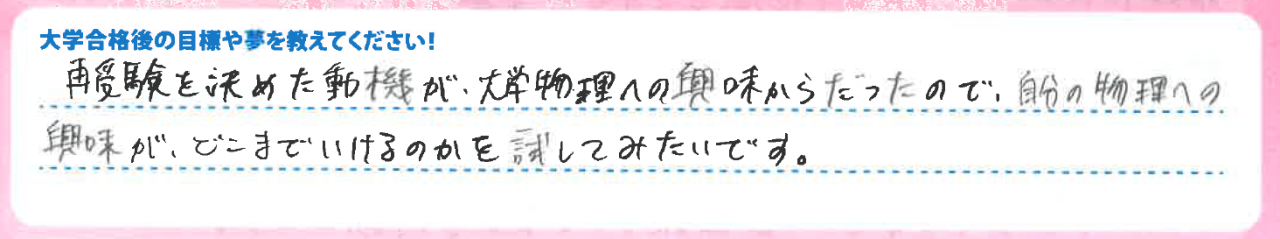 大学合格後の目標や夢を教えてください!
再受験を決めた動機が、大学物理への興味からだったので、自分の物理への
興味が、どこまでいけるのかを試してみたいです。